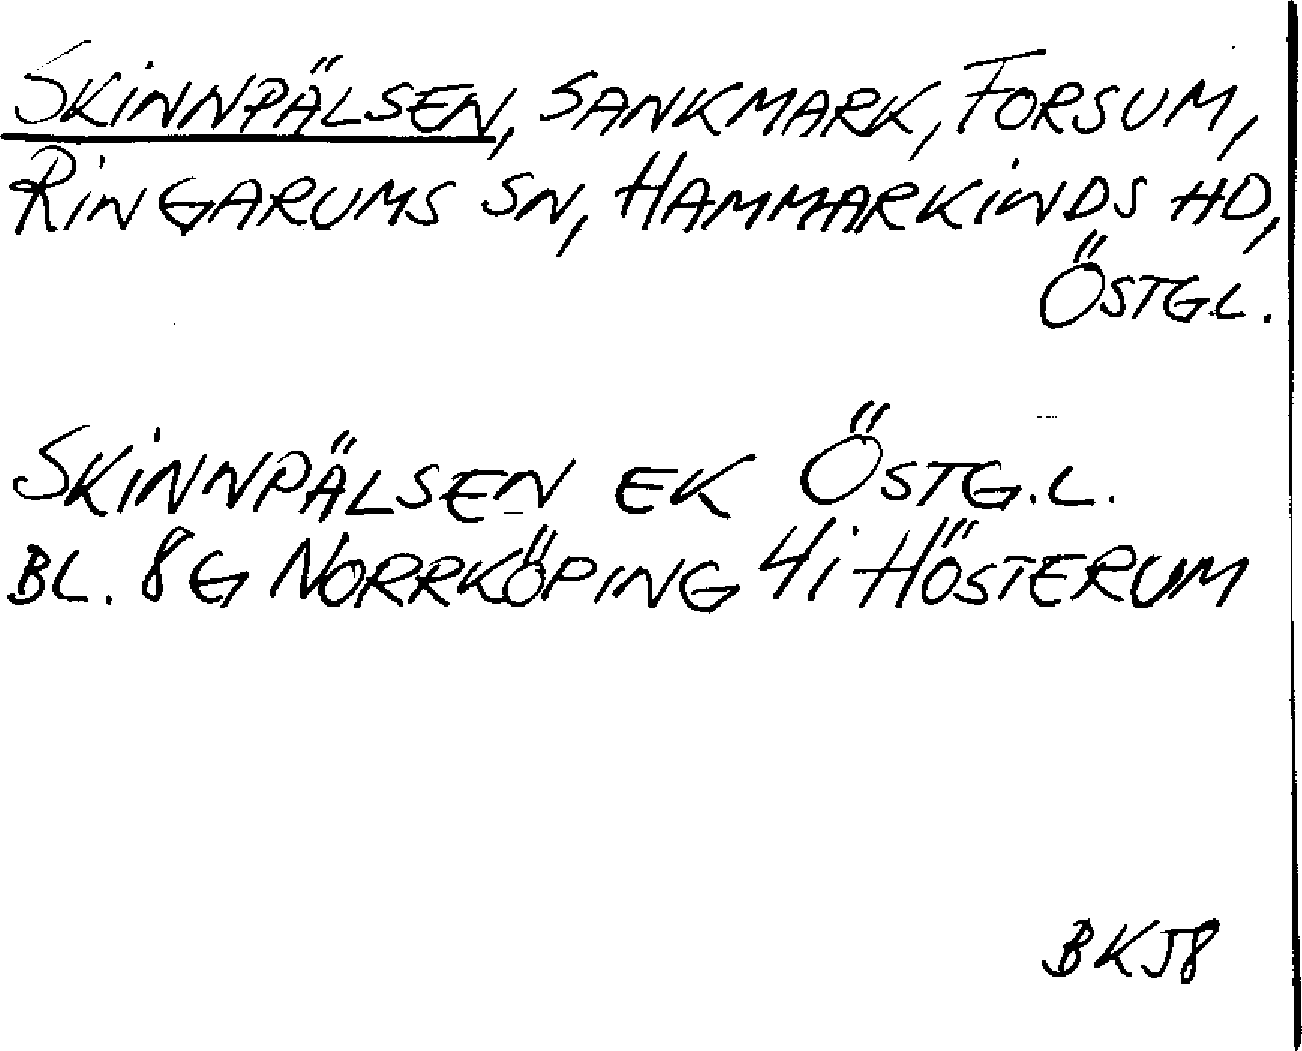 SKINNPÄLSEN, SANKMARK, FORSUM,
RINGARUMS SN, HAMMARKINDS HD,
ÖSTGL.
SKINNPÄLSEN EK ÖSTG.L.
BL. 8G NORRKÖPING 4i HÖSTERUM
BK58